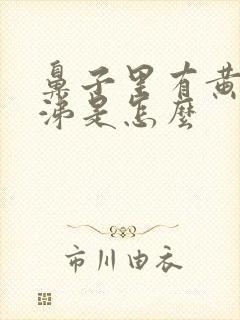 鼻子里有黄
涕是怎麼
市川由衣